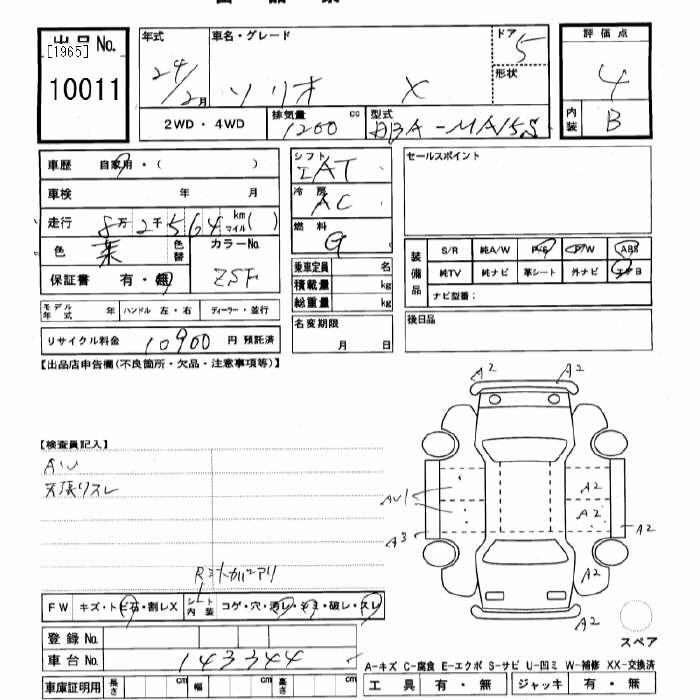 出品No.
[1965]
10011
年式
24/2月
車名・グレード
ソリオ X
ドア 5
形状
評価点
4
内装 B
2WD・4WD
排気量 1200 cc
型式 DBA-MA15S
車歴 自家用・( )
車検 年 月
走行 8万2千564 km マイル( )
色
色替
カラーNo.
ZSF
保証書 有・無
シフト
IAT
冷房
AC
燃料
G
乗車定員 名
積載量 kg
総重量 kg
名変期限
月 日
セールスポイント
装備品
S/R 純A/W P/S P/W ABS
純TV 純ナビ 革シート 外ナビ エアB
ナビ型番:
後日品
モデル年式 年 ハンドル 左・右 ディーラー・並行
リサイクル料金 10900 円 預託済
【出品店申告欄(不良箇所・欠品・注意事項等)】
【検査員記入】
AU
天張りスレ
FW キズ・トビ石・割レX
シート内装 コゲ・穴・汚レ・シミ・破レ・スレ
登録No.
車台No. 143344
車庫証明用 長さ cm 幅 cm 高さ cm
A2 A2
AU1
A3
A2
A2
A2
A2
A2
スペア
A-キズ C-腐食 E-エクボ S-サビ U-凹ミ W-補修 XX-交換済
工具 有・無 ジャッキ 有・無